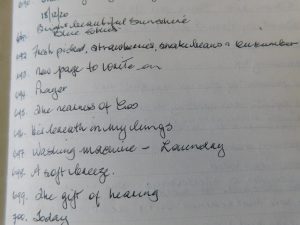 690.
18/2/20
691. Bright beautiful sunshine
Blue skies
692. Fresh picked, strawberries, snakebeans & cucumber
693. new page to write on
694. Prayer
695. The nearness of
696. breath in my lungs
697. Washing machine - Laundry
698. A soft breeze.
699. The gift of hearing
700. Today